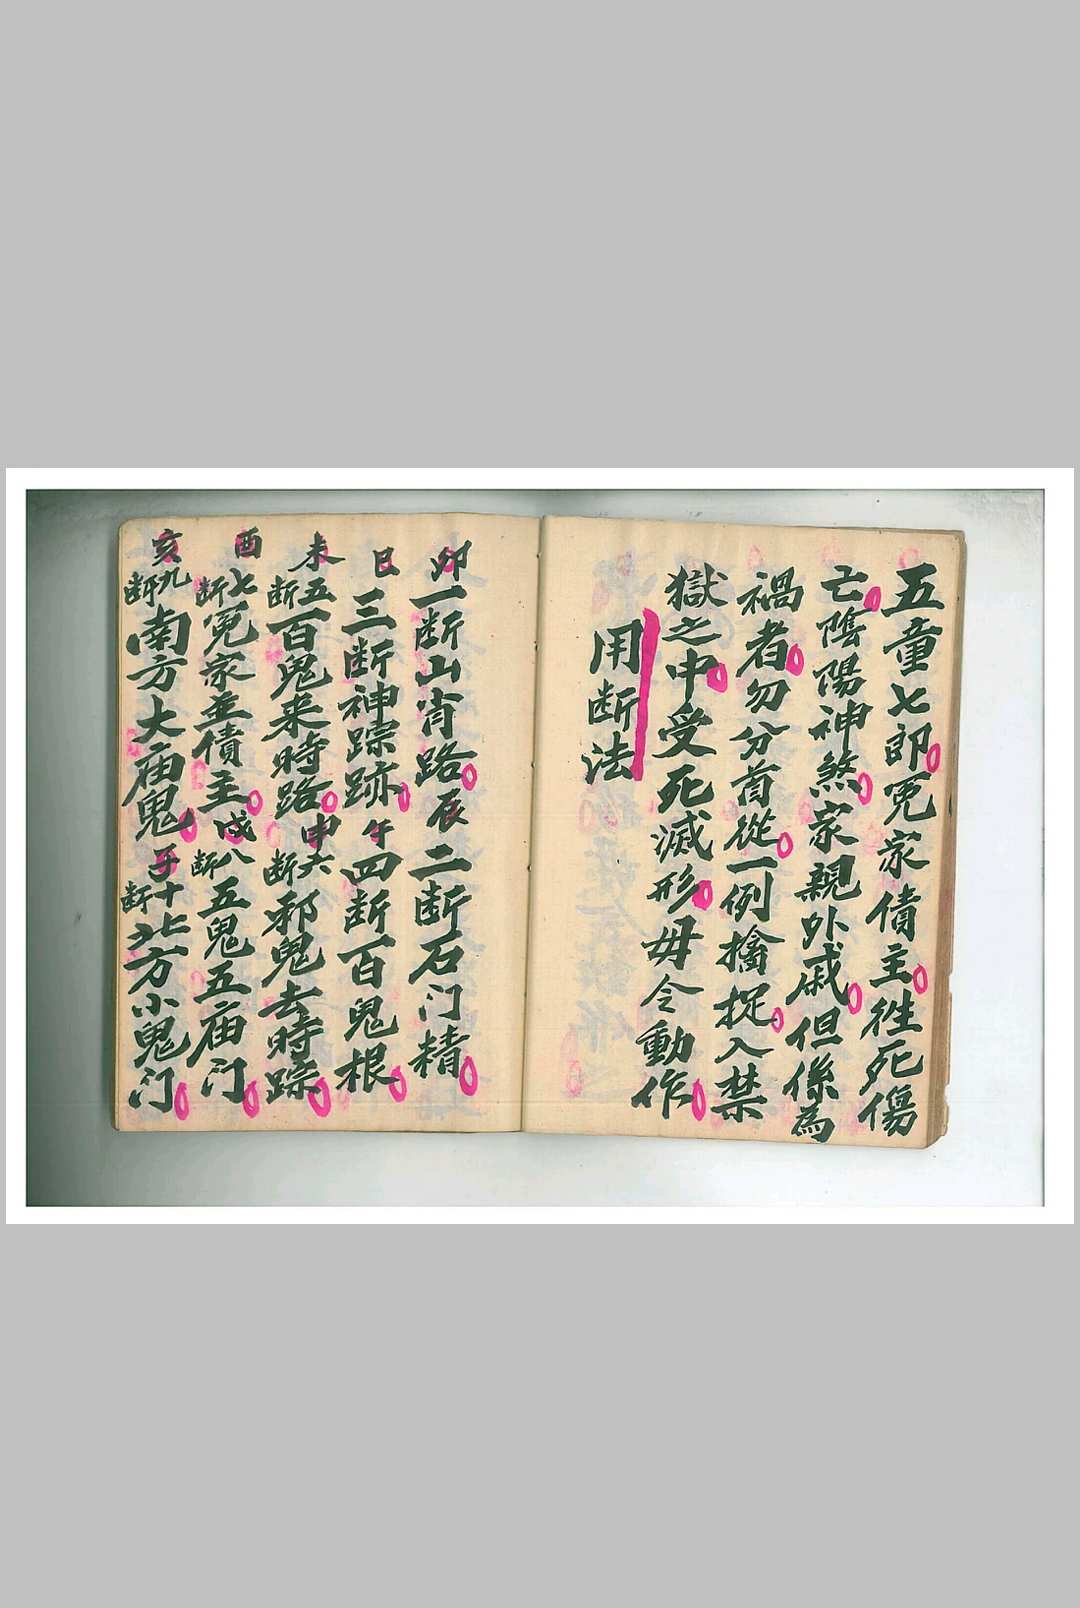 五童七郎冤家債主徃死傷
亡陰陽神煞家親外戚但係為
禍者勿分首從一例擒捉入禁
獄之中受死滅形毋令動作
用断法
卯一断山宵路辰二断石门精
巳三断神踪跡午四断百鬼根
未五断百鬼来時路申六断邪鬼去時踪
酉七断冤家並債主戌八断五鬼五庙门
亥九断南方大庙鬼子十断北方小鬼门